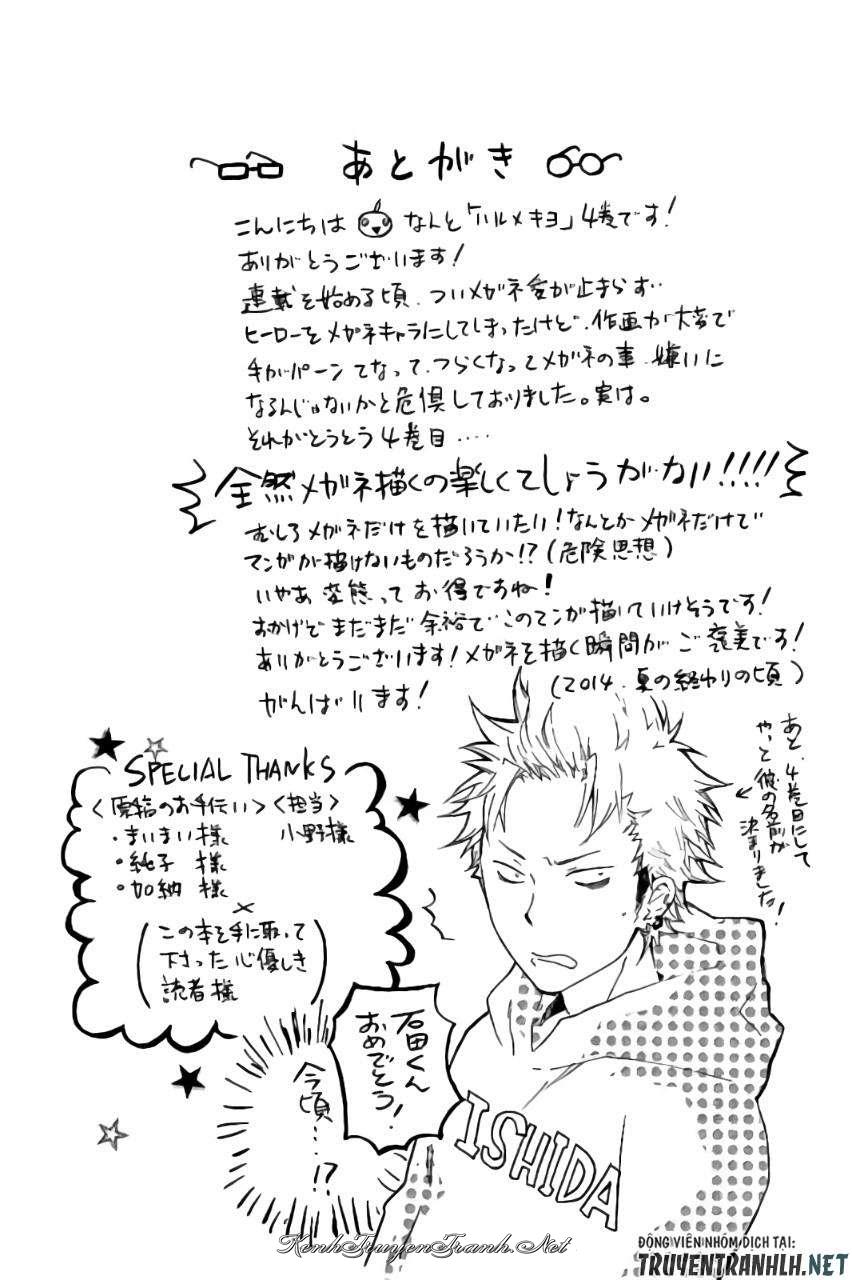 あとがき
こんにちは なんと「ハルメキヨ」4巻です!
ありがとうございます!
連載を始める頃、ついメガネ愛が止まらず…
ヒーローをメガネキャラにしてしまったけど、作画が大変で
手がパーンてなって、つらくなってメガネの事、嫌いに
なるんじゃないかと危惧しておりました。実は。
それがとうとう4巻目‥‥
全然メガネ描くの楽しくてしょうがない!!!!
むしろメガネだけを描いていたい!なんとかメガネだけで
マンガが描けないものだろうか!?(危険思想)
いやあ変態ってお得ですね!
おかげでまだまだ余裕でこのマンガ描いていけそうです!
ありがとうございます!メガネを描く瞬間がご褒美です!
がんばります!
(2014.夏の終わりの頃)
あと、4巻目にして
やっと彼の名前が
決まりました!
SPECIAL THANKS
<原稿のお手伝い> <担当>
・まいまい様 小野様
・純子様
・加納様
×
(この本を手に取って
下さった心優しき
読者様)
石田くん
おめでとう!
今頃…!?
ISHIDA
KenhTruyenTranh.Net
ĐỘNG VIÊN NHÓM DỊCH TẠI:
TRUYENTRANHLH.NET